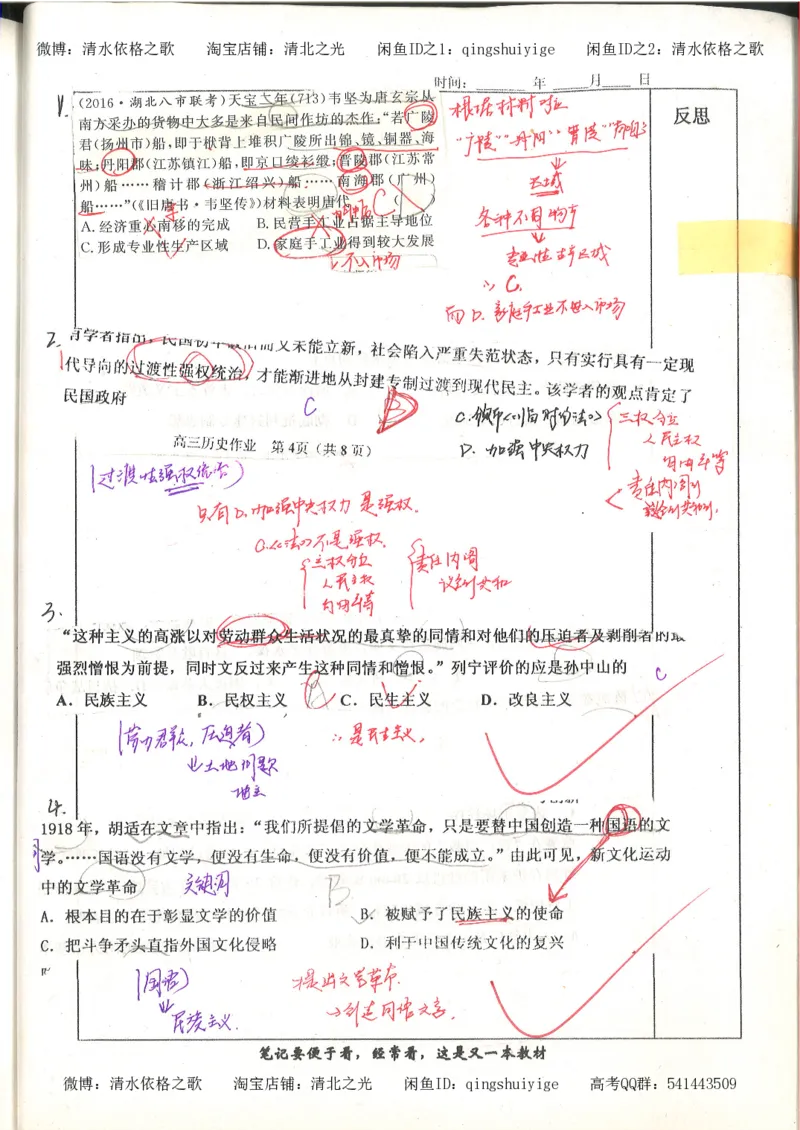 微博：清水依格之歌 淘宝店铺：清北之光 闲鱼ID之1：qingshuiyige 闲鱼ID之2：清水依格之歌
时间： 年 月 日
反思
1.
(2016·湖北八市联考)天宝年(713)韦坚为唐玄宗从
南方采办的货物中大多是来自民间作坊的杰作："若广陵
君(扬州市)船,即于栿背上堆积广陵所出锦、镜、铜器、海
味;丹阳郡(江苏镇江)船,即京口绫衫缎;晋陵郡(江苏常
州)船……稽计郡(浙江绍兴)船……南海郡(广州)
船……"(《旧唐书·韦坚传》)材料表明唐代 ( )
A.经济重心南移的完成 B.民营手工业占据主导地位
C.形成专业性生产区域 D.家庭手工业得到较大发展
C
不入市场
根据材料
"广陵""丹阳""晋陵""南海"
区域
各种不同物产
专业性生产区域
∴ C.
而D.家庭手工业不投入市场
2.
有学者指出，民国初年政治而又未能立新，社会陷入严重失范状态，只有实行具有一定现
代导向的过渡性强权统治，才能渐进地从封建专制过渡到现代民主。该学者的观点肯定了
民国政府
C
B
C.颁布《临时约法》
D.加强中央权力
三权分立
人民主权
自由平等
责任内阁制
高三历史作业 第4页（共8页）
(过渡性强权统治)
只有D.加强中央权力 是强权.
C.《法》不是强权.
三权分立
人民主权
自由平等
责任内阁
议会制共和
3.
“这种主义的高涨以对劳动群众生活状况的最真挚的同情和对他们的压迫者及剥削者的最
强烈憎恨为前提，同时文反过来产生这种同情和憎恨。”列宁评价的应是孙中山的
A．民族主义 B．民权主义 C．民生主义 D．改良主义
B
C
(劳动群众,压迫者)
土地问题
地主
∴是民生主义,
4.
1918年，胡适在文章中指出：“我们所提倡的文学革命，只是要替中国创造一种国语的文
学。……国语没有文学，便没有生命，便没有价值，便不能成立。”由此可见，新文化运动
中的文学革命
关键词
B
A．根本目的在于彰显文学的价值 B．被赋予了民族主义的使命
C．把斗争矛头直指外国文化侵略 D．利于中国传统文化的复兴
(国语)
民族主义.
提出文学革命.
→创造国语文学.
笔记要便于看，经常看，这是又一本教材
微博：清水依格之歌 淘宝店铺：清北之光 闲鱼ID：qingshuiyige 高考QQ群：541443509